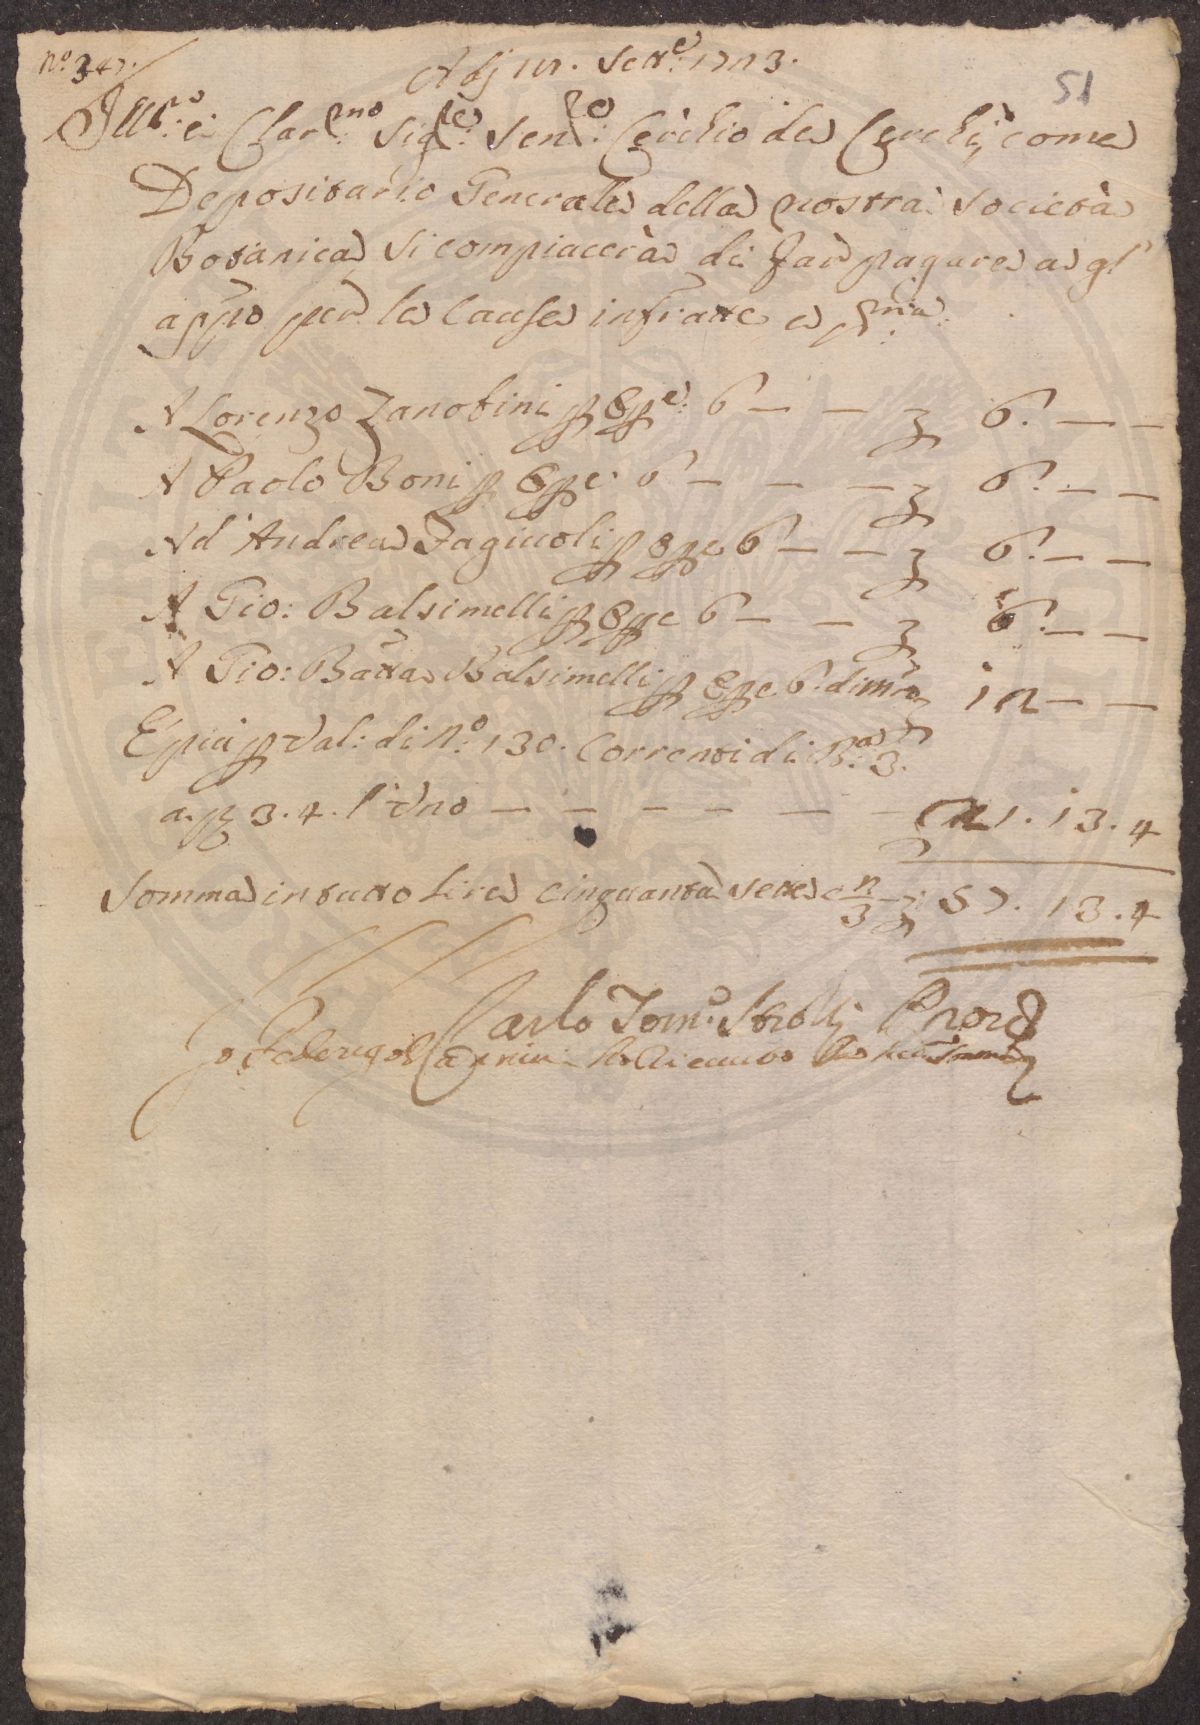 N.o 347.
Adj 11. Sett.e 1723.
51
Ill.mo e Clar.mo Sig.re Sen.re Cerchio de Cerchij come
Depositario Generale della nostra Società
Botanica si compiacerà di far pagare a gl'
app.o per le cause infratte e p.ma
A Lorenzo Zanobini p Op.e 6 — — £ 6. — —
A Paolo Boni p Ope 6 — — — £ 6. — —
Ad' Andrea Fagiuoli p Ope 6 — — £ 6. — —
A Gio: Balsimelli p Ope 6 — — £ 6. — —
A Gio: Batta Balsimelli p Ope 6. £ 12 — —
E piu p Val: di N.o 130. Correnti di B.a 3.
a 3. 4. l'uno — — — — — 21. 13. 4
Somma in tutto lire cinquanta sette e 2/3 £ 57. 13. 4
Carlo Tom.o Strozzi